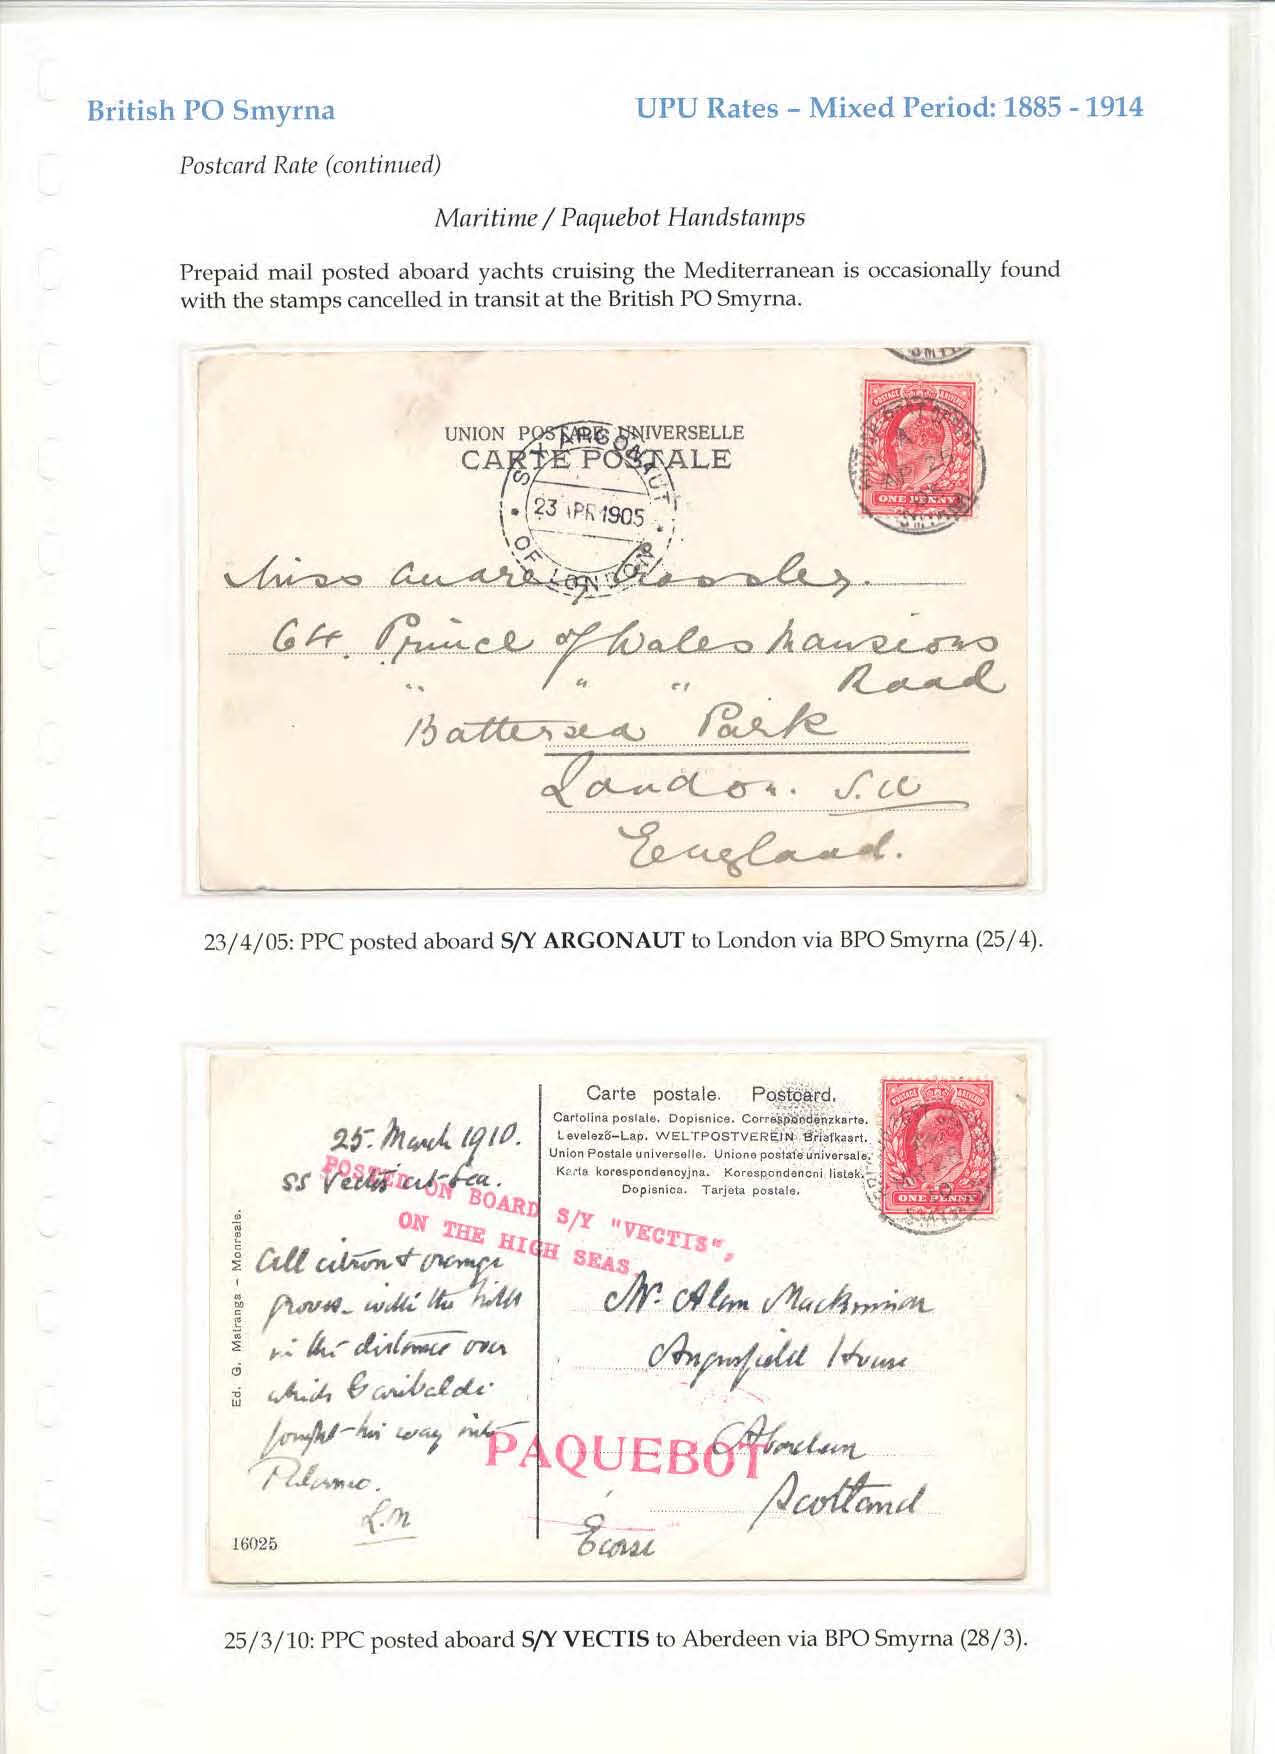 British PO Smyrna
UPU Rates – Mixed Period: 1885 - 1914
Postcard Rate (continued)
Maritime / Paquebot Handstamps
Prepaid mail posted aboard yachts cruising the Mediterranean is occasionally found
with the stamps cancelled in transit at the British PO Smyrna.
UNION POSTALE UNIVERSELLE
CARTE POSTALE
S Y ARGONAUT
23 APR 1905
OF LONDON
POSTAGE REVENUE
ONE PENNY
Miss Crossley.
64. Prince of Wales Mansions
" " " Road
Battersea Park
London. S.W
England.
23/4/05: PPC posted aboard S/Y ARGONAUT to London via BPO Smyrna (25/4).
Carte postale. Postcard.
Cartolina postale. Dopisnice. Correspondenzkarte.
Levelező-Lap. WELTPOSTVEREIN Briefkaart.
Union Postale universelle. Unione postale universale.
Karta korespondencyjna. Korespondencni listek.
Dopisnica. Tarjeta postale.
ONE PENNY
25. March 1910.
SS Vectis at Sea.
POSTED ON BOARD S/Y "VECTIS",
ON THE HIGH SEAS.
All citron & orange
groves with the hills
in the distance over
which Garibaldi
fought his way into
Palermo.
L.M
Mr. Alan Mackinnon
Angusfield House
Aberdeen
Scotland
Ecosse
PAQUEBOT
Ed. G. Matranga – Monreale.
16025
25/3/10: PPC posted aboard S/Y VECTIS to Aberdeen via BPO Smyrna (28/3).